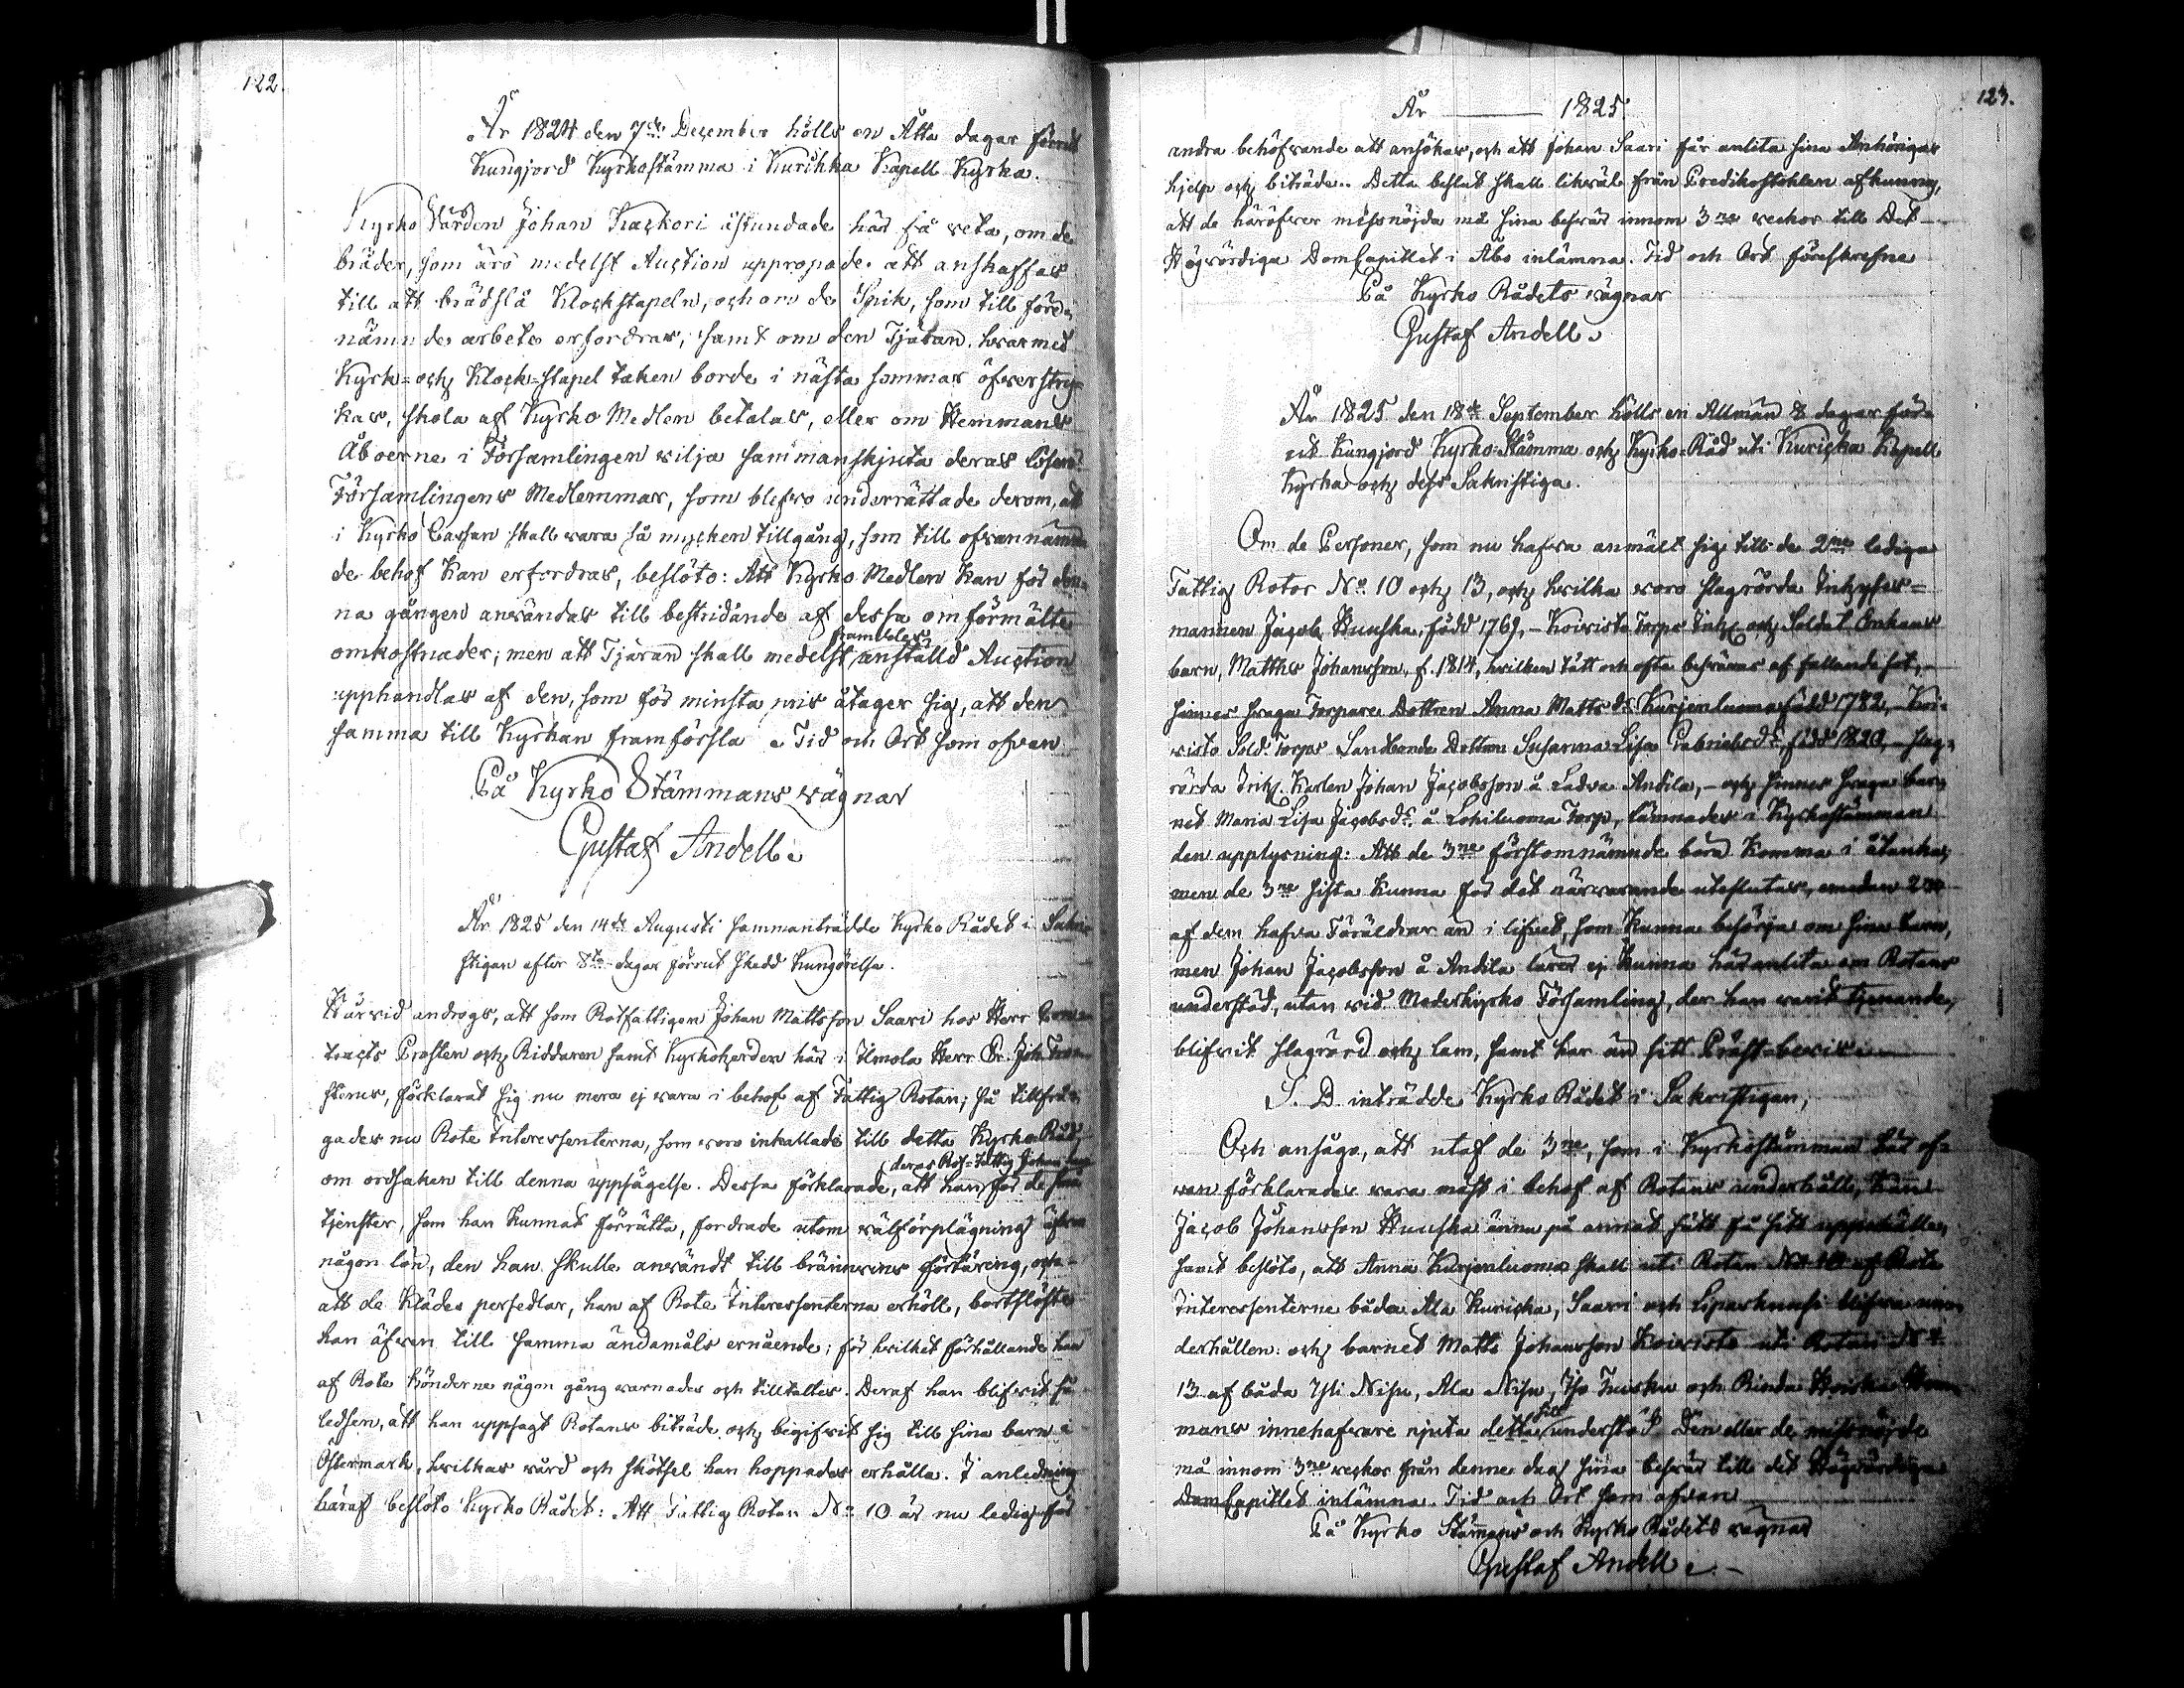 122.
År 1824 den 7de December hölls en Åtta dagar förrut
Kungjord Kyrkostämma i Kurikka Kapell Kyrka.
Kyrko Värden Johan Kackori åstundade här få veta, om de
bräder, som äro medelst Auction uppropade att anskaffas
till att brädslå Klockstapeln, och om de Spik, som till före-
nämnde arbete erfordras, samt om den Tjäran, hvarmed
Kyrk- och Klock-stapel taken borde i nästa sommar öfverstry-
kas, skola af Kyrko Medlen betalas, eller om Hemmans
Åboerne i Församlingen vilja sammanskjuta deras lösen?
Församlingens Medlemmar, som blefvo underrättade derom, att
i Kyrko Cassan skall vara så mycken tillgång, som till ofvannämn-
de behof kan erfordras, beslöto: Att Kyrko Medlen kan för den-
na gången användas till bestridande af dessa omförmälte
omkostnader; men att Tjäran skall medelst framdeles anställd Auction
upphandlas af den, som för minsta pris åtager sig, att den
samma till Kyrkan framförsla. Tid och Ort som ofvan
På Kyrko Stämmans vägnar
Gustaf Andell.
År 1825 den 14de Augusti sammanträdde Kyrko Rådet i Sakri-
stigan efter 8ta dagar förrut skedd Kungörelse.
Härvid androgs, att som Rotfattigen Johan Mattsson Saari hos Herr Con-
tracts Prosten och Riddaren samt Kyrkoherden här i Ilmola Herr Dr. Joh.
förklarat sig nu mera ej vara i behof af Fattig Rotan; så tillfrå-
gades nu Rote Interessenterna, som voro inkallade till detta Kyrko Råd,
om orsaken till denna uppsägelse. Dessa förklarade, att deras Rot-Fattig Johan han för de små
tjenster, som han kunnat förrätta, fordrade utom välförplägning äfven
någon lön, den han skulle användt till bränvins förtäring, och
att de Klädes persedlar, han af Rote Interessenterna erhöll, bortslöste
han äfven till samma ändamåls ernående; för hvilket förhållande han
af Rote Bönderne någon gång varnades och tilltaltes. Deraf han blifvit så
ledsen, att han uppsagt Rotans biträde och begifvit sig till sina barn i
Östermark, hvilkas vård och skötsel han hoppades erhålla. I anledning
häraf beslöto Kyrko Rådet: Att Fattig Rotan No 10 är nu ledig för
År 1825. 123.
andra behöfvande att ansökas, och att Johan Saari får anlita sina Anhörigas
hjelp och biträde. Detta beslut skall likväl från Predikostolen afkunng,
att de häröfver missnöjda må sina besvär innom 3ne veckor till Det
Högvördiga DomCapitlet i Åbo inlämna. Tid och Ort föreskrefne
På Kyrko Rådets vägnar
Gustaf Andell.
År 1825 den 18de September hölls en Allmän 8 dagar för-
ut Kungjord Kyrko-Stämma och Kyrko-Råd uti Kuricka Kapell
Kyrka och dess Sakristiga.
Om de Personer, som nu hafva anmält sig till de 2ne lediga
Fattig Rotor No 10 och 13, och hvilka voro slagrörda Inhyses-
mannen Jacob Huuska, född 1769, - Koivisto Torps Inh. och Soldat Enkans
barn, Matths Johansson, f. 1814, hvilken tätt och ofta besväras af fallande sot,
sinnes svaga Torpare Dottren Anna Matts dr Kurjenluoma född 1782, - Koi-
visto Sold. Torps Landbonde Dottren Susanna Lisa Gabrielsdr, född 1820, - slag-
rörda Inh. Karlen Johan Jacobsson å Ladva Andila, - och sinnes svaga bar-
net Maria Lisa Jacobsdr. å Lohiluoma Torp, lämnades i Kyrkostämman
den upplysning: Att de 3ne förstomnämnde böra komma i åtanka,
men de 3ne sista kunna för det närvarande uteslutas, emedan 2ne
af dem hafva Föräldrar än i lifvet, som kunna besörja om sina barn,
men Johan Jacobsson å Andila lärer ej kunna här anlita om Rotans
understöd, utan vid Moderkyrko Församling, der han varit tjenande,
blifvit slagrörd och lam, samt har än sitt Präst-bevis.
S. D. inträdde Kyrko Rådet i Sakristigan,
Och ansågo, att utaf de 3ne, som i Kyrkostämman här of-
van förklarades vara mäst i behof af Rotans underhåll, kan
Jacob Johansson Huuska änna på annat sätt få sitt uppehälle,
samt beslöto, att Anna Kurjenluoma skall uti Rotan No 10 af Rote
Interessenterne båda Ala Kuricka, Saari och Liparkuusi blifva un-
derhållen: och barnet Matts Johansson Koivisto uti Rotan No
13 af båda Yli Nisu, Ala Nisu, Iso Tuisku och Rinda Hem-
mans innehafvare njuta detta understöd. Den eller de missnöjde
må innom 3ne veckor från denne dag sina besvär till det Högvördiga
DomCapitlet inlämna. Tid och Ort som ofvan
På Kyrko Stämmans och Kyrko Rådets vägnar
Gustaf Andell.